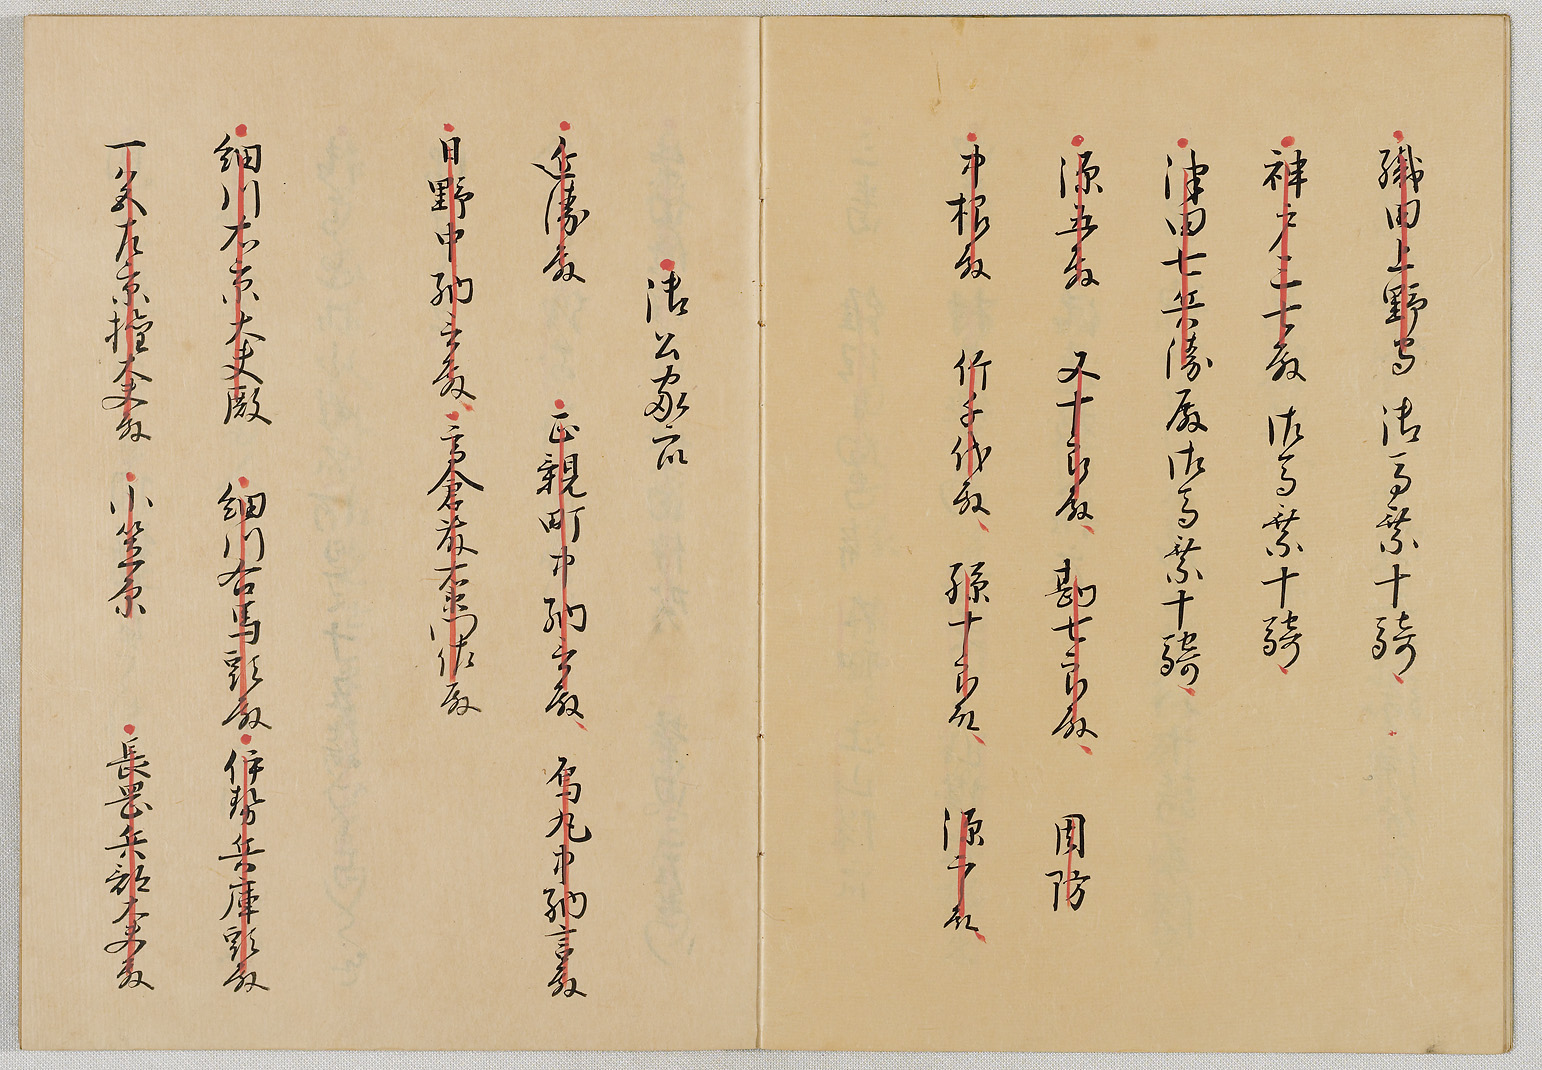 織田上野守 御馬乗十騎
神戸三七殿 御馬乗十騎
津田七兵衛殿御馬乗十騎
源五殿 又十郎殿 勘七郎殿 周防
中根殿 竹千代殿 孫十郎殿 源二郎殿
御公家衆
近衛殿 正親町中納言殿 烏丸中納言殿
日野中納言殿 高倉藤右衛門佐殿
細川右京大夫殿 細川右馬頭殿 伊勢兵庫頭殿
一色左京権大夫殿 小笠原 長岡兵部大夫殿